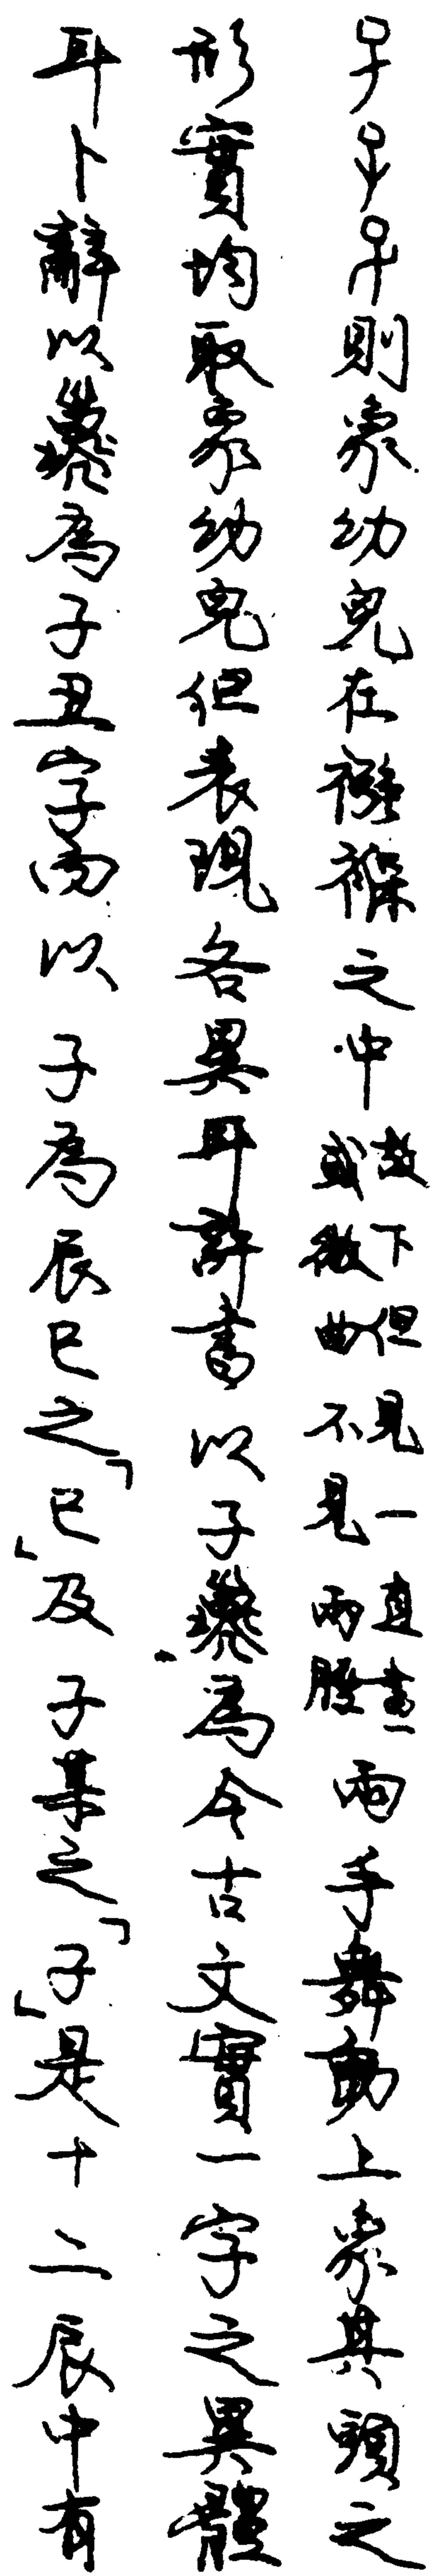 子子子則象幼兒在襁褓之中故下但見一直畫或微曲不見兩脛兩手舞動上象其頭之
形實均取象幼兒但表現各異耳許書以子㜽為今古文實一字之異體
耳卜辭以㜽為子丑字而以子為辰巳之「巳」及子某之「子」是十二辰中有